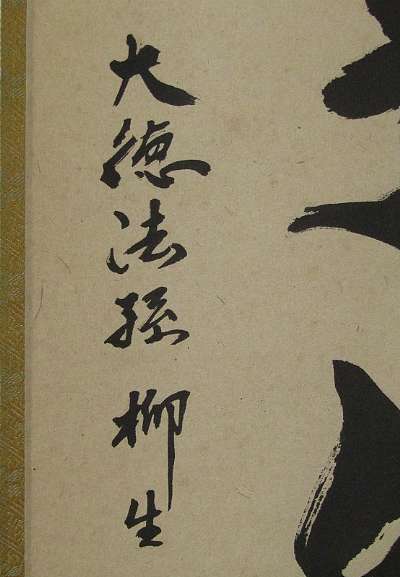 大徳法孫 柳生